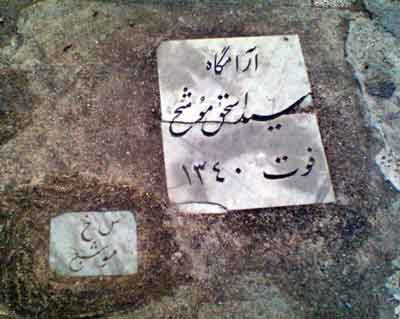 آرامگاه
سید اسحق موشح
فوت ۱۳۴۰
س خ
موشح